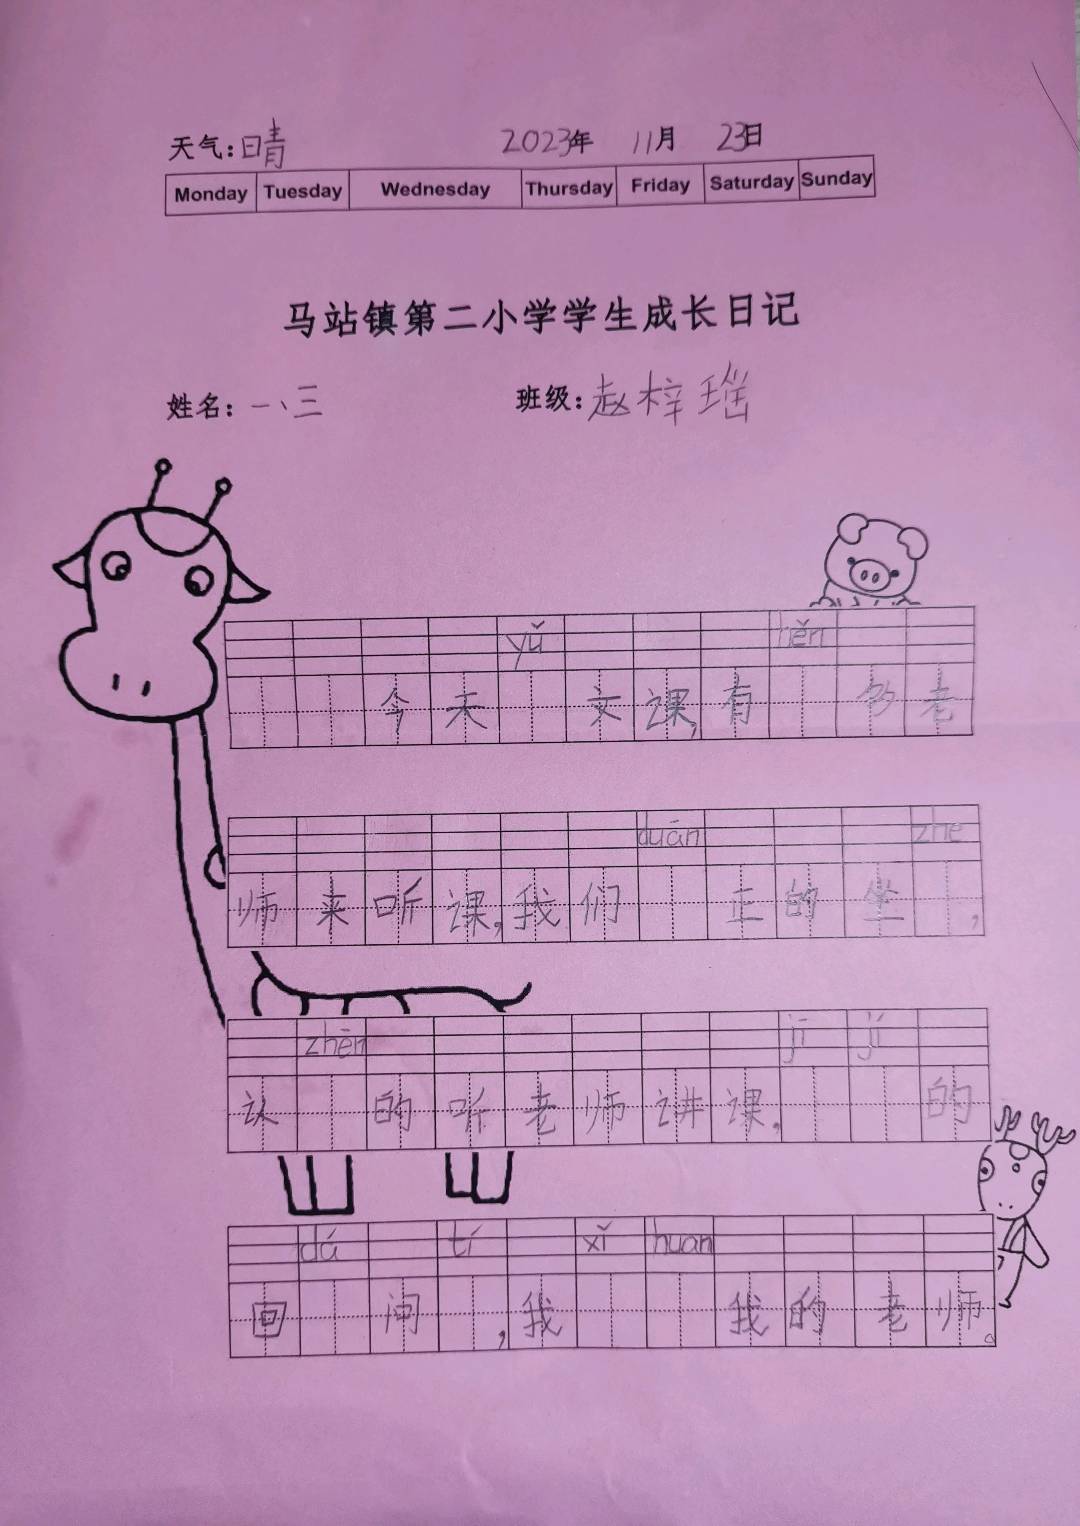 天气:晴 2023年 11月 23日
Monday Tuesday Wednesday Thursday Friday Saturday Sunday
马站镇第二小学学生成长日记
姓名:一、三 班级:赵梓瑶
yǔ hěn
今天 文课,有 多老
duān zhe
师来听课,我们 正的坐 ,
zhēn jī jí
认 的听老师讲课, 的
dá tí xǐ huan
回 问 ,我 我的老师。